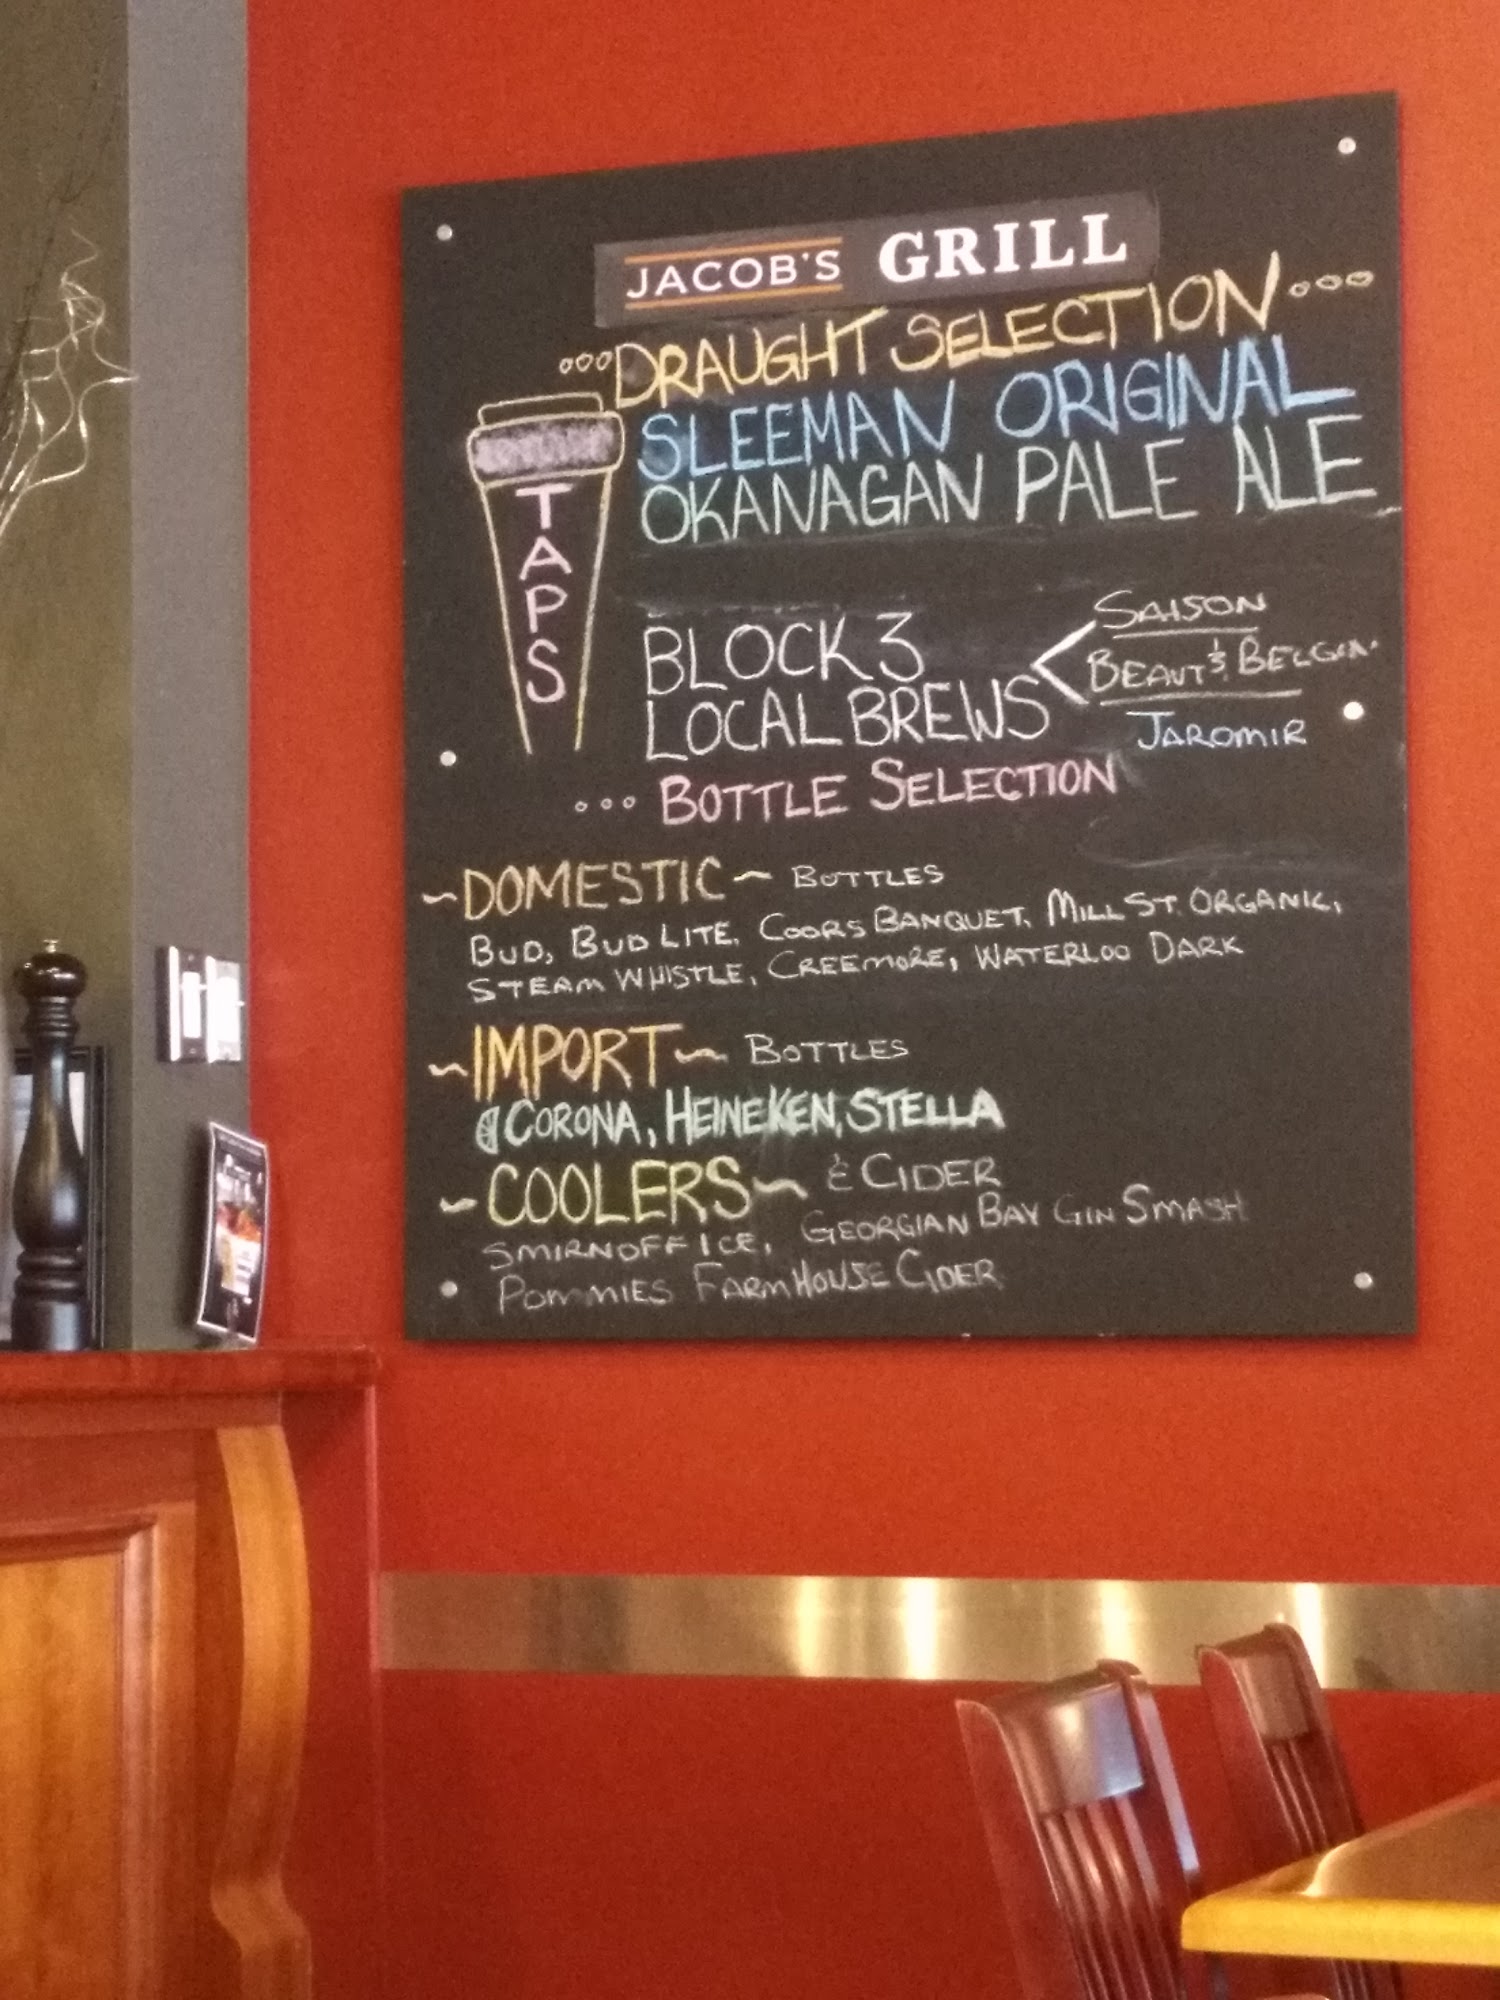 JACOB'S GRILL
°°°DRAUGHT SELECTION°°°
SLEEMAN ORIGINAL
OKANAGAN PALE ALE
TAPS
BLOCK 3
LOCAL BREWS
SAISON
BEAUT & BELGIA.
JAROMIR
°°° BOTTLE SELECTION
~DOMESTIC~ BOTTLES
BUD, BUD LITE, COORS BANQUET, MILL ST. ORGANIC,
STEAM WHISTLE, CREEMORE, WATERLOO DARK
~IMPORT~ BOTTLES
CORONA, HEINEKEN, STELLA
~COOLERS~ & CIDER
SMIRNOFF ICE, GEORGIAN BAY GIN SMASH
POMMIES FARMHOUSE CIDER